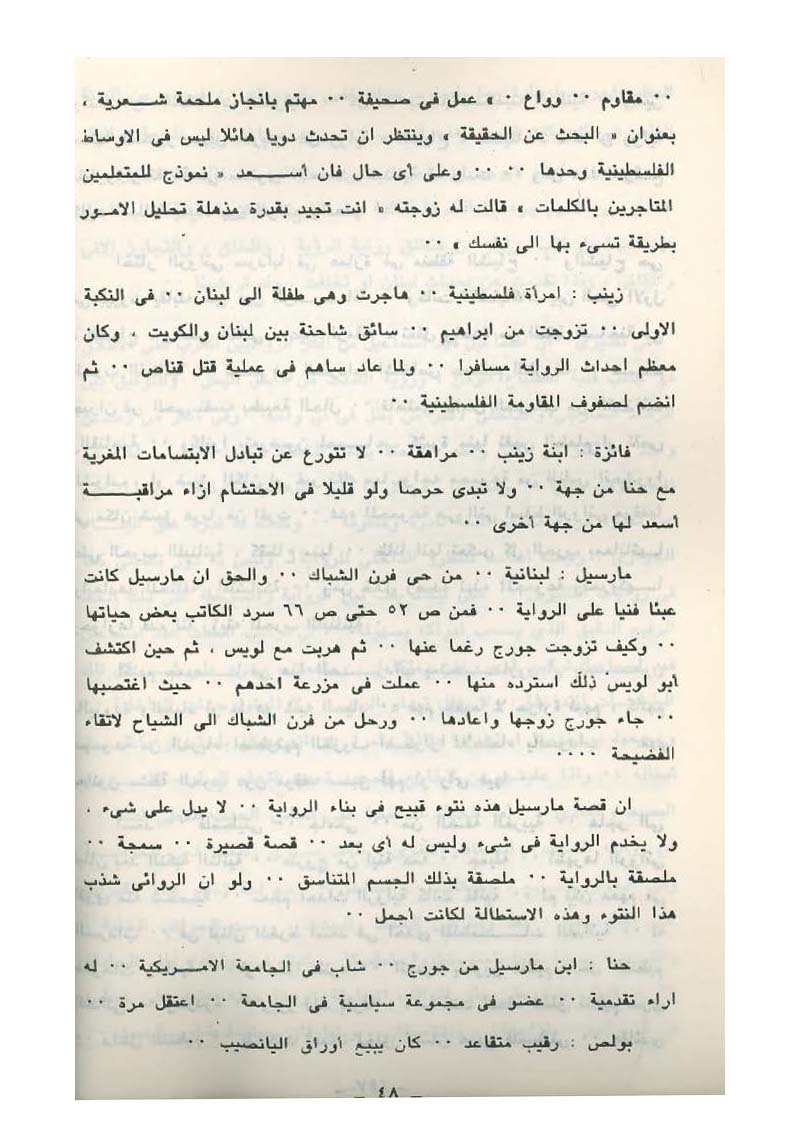 ٠٠ مقاوم ٠٠ وواع ٠ » عمل فى صحيفة ٠٠ مهتم بانجاز ملحمة شــعرية ،
بعنوان « البحث عن الحقيقة » وينتظر ان تحدث دويا هائلا ليس فى الاوساط
الفلسطينية وحدها ٠٠ ٠٠ وعلى أى حال فان أســـعد « نموذج للمتعلمين
المتاجرين بالكلمات » قالت له زوجته « انت تجيد بقدرة مذهلة تحليل الامــور
بطريقة تسىء بها الى نفسك » ٠٠
زينب : امرأة فلسطينية ٠٠ هاجرت وهى طفلة الى لبنان ٠٠ فى النكبة
الاولى ٠٠ تزوجت من ابراهيم ٠٠ سائق شاحنة بين لبنان والكويت ، وكان
معظم احداث الرواية مسافرا ٠٠ ولما عاد ساهم فى عملية قتل قناص ٠٠ ثم
انضم لصفوف المقاومة الفلسطينية ٠٠
فائزة : ابنة زينب ٠٠ مراهقة ٠٠ لا تتورع عن تبادل الابتسامات المغرية
مع حنا من جهة ٠٠ ولا تبدى حرصا ولو قليلا فى الاحتشام ازاء مراقبـــة
أسعد لها من جهة أخرى ٠٠
مارسيل : لبنانية ٠٠ من حى فرن الشباك ٠٠ والحق ان مارسيل كانت
عبئا فنيا على الرواية ٠٠ فمن ص ٥٢ حتى ص ٦٦ سرد الكاتب بعض حياتها
٠٠ وكيف تزوجت جورج رغما عنها ٠٠ ثم هربت مع لويس ، ثم حين اكتشف
أبو لويس ذلك استرده منها ٠٠ عملت فى مزرعة احدهم ٠٠ حيث اغتصبها
٠٠ جاء جورج زوجها واعادها ٠٠ ورحل من فرن الشباك الى الشياح لاتقاء
الفضيحة ٠٠٠٠
ان قصة مارسيل هذه نتوء قبيح فى بناء الرواية ٠٠ لا يدل على شىء ،
ولا يخدم الرواية فى شىء وليس له أى بعد ٠٠ قصة قصيرة ٠٠ سمجة ٠٠
ملصقة بالرواية ٠٠ ملصقة بذلك الجسم المتناسق ٠٠ ولو ان الروائى شذب
هذا النتوء وهذه الاستطالة لكانت أجمل ٠٠
حنا : ابن مارسيل من جورج ٠٠ شاب فى الجامعة الامــريكية ٠٠ له
اراء تقدمية ٠٠ عضو فى مجموعة سياسية فى الجامعة ٠٠ اعتقل مرة ٠٠
بولص : رقيب متقاعد ٠٠ كان يبيع أوراق اليانصيب ٠٠
– ٤٨ –